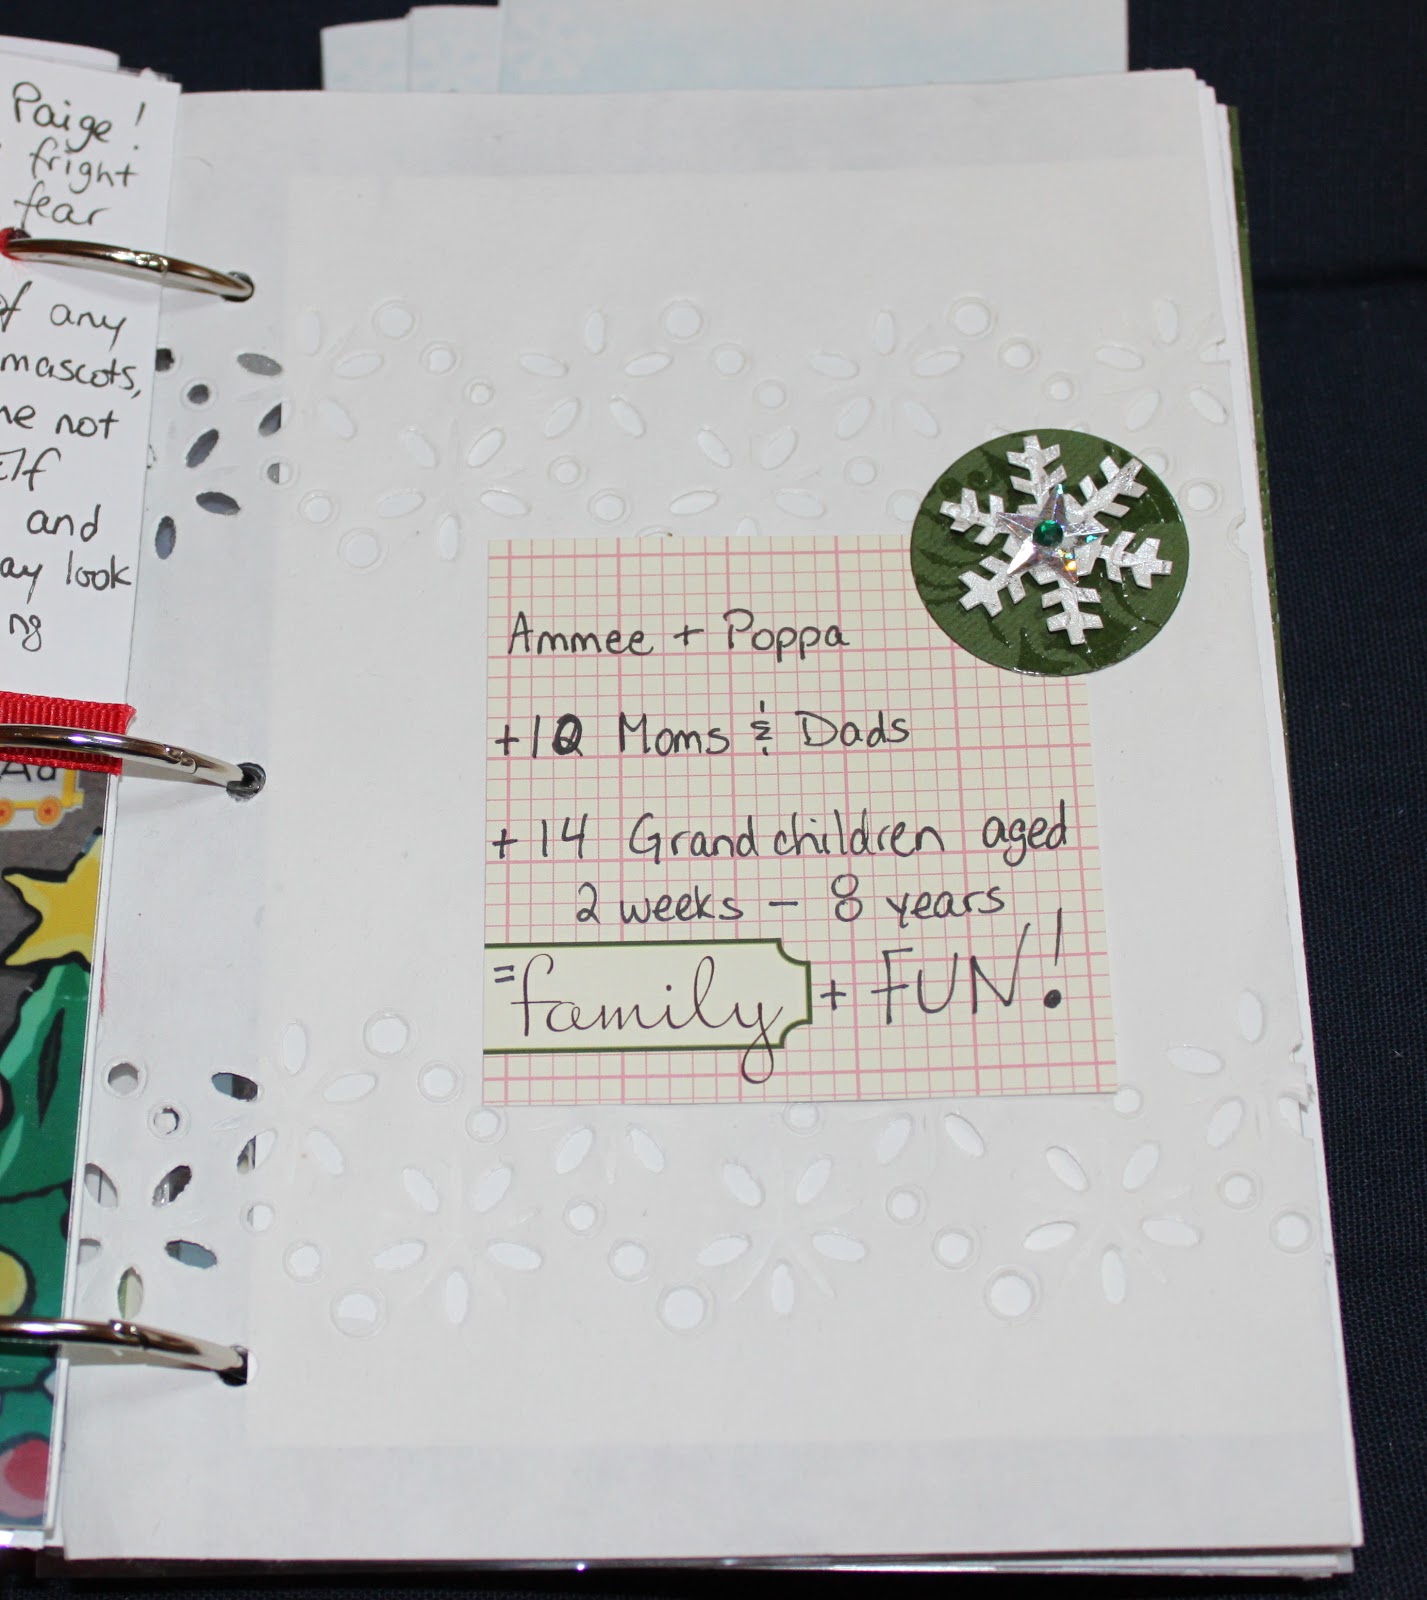 Paige!
fright
fear
of any
mascots,
not
Elf
and
look
Aa
Ammee + Poppa
+ Moms & Dads
+ 14 Grandchildren aged
2 weeks - 8 years
=family + FUN!